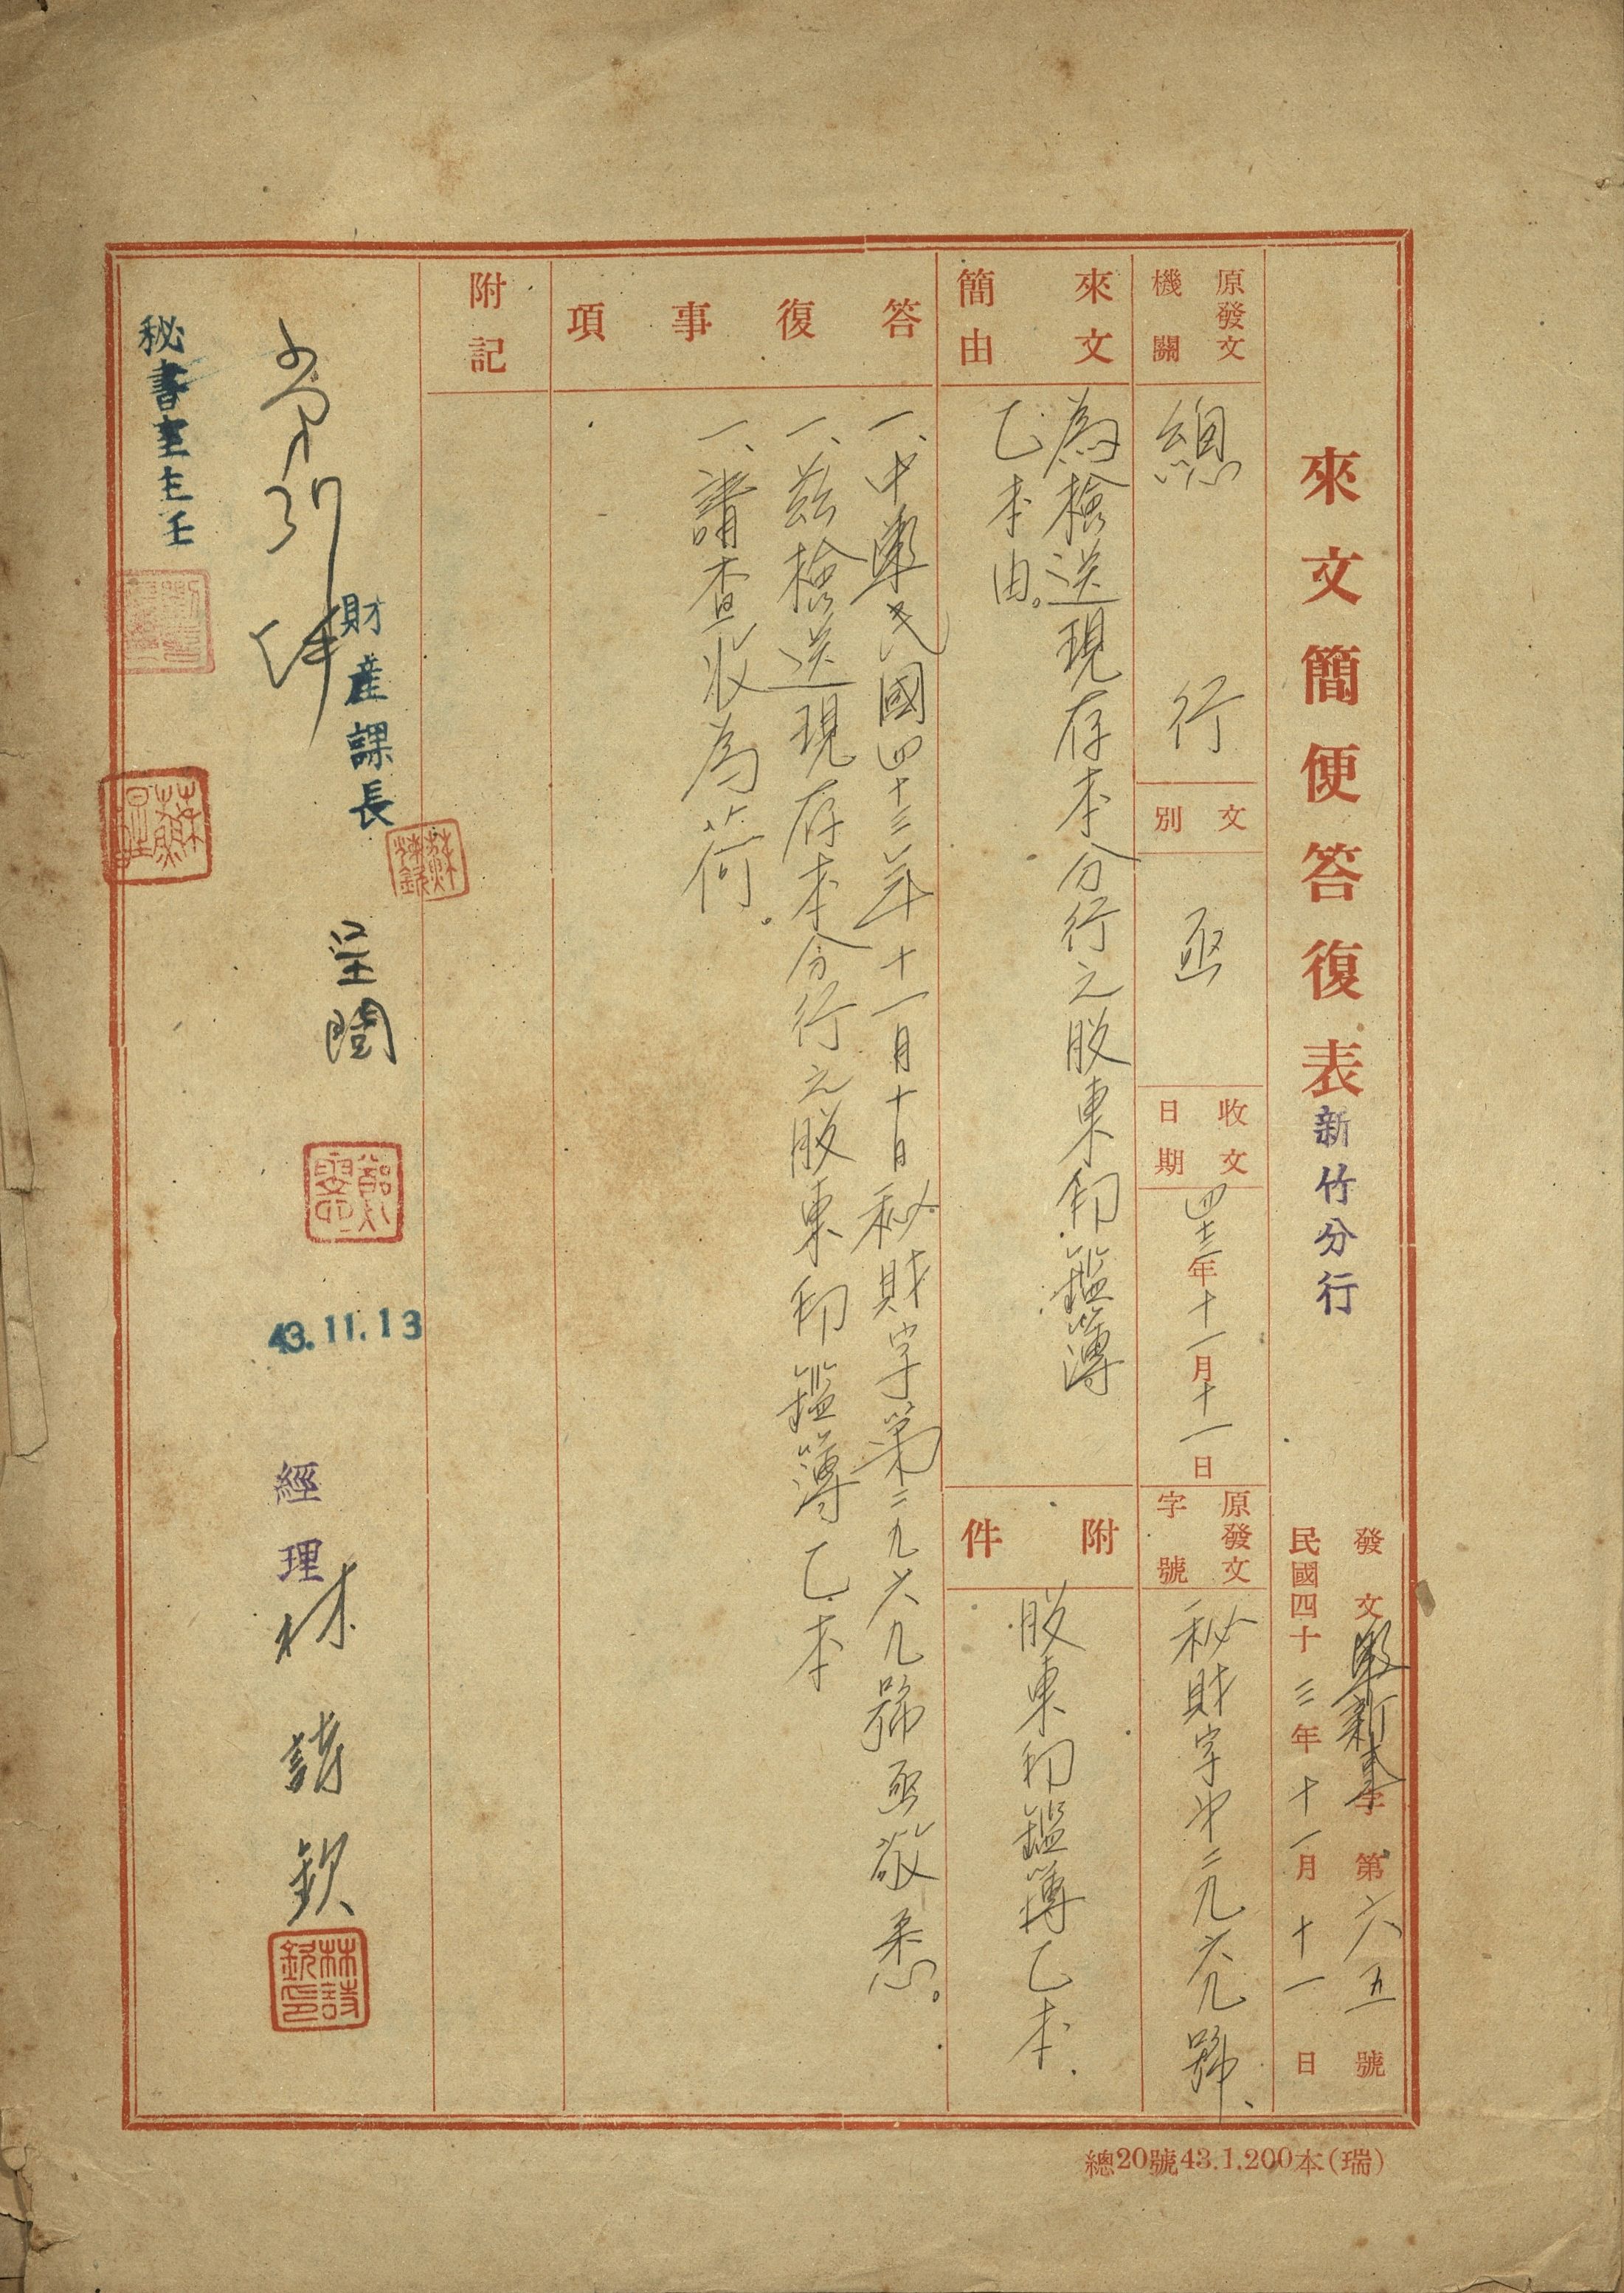 來文簡便答復表 新竹分行
發文字第六五號
民國四十三年十一月十一日
原發文機關
總行
文別
函
收文日期
四十三年十一月十一日
原發文字號
秘財字第二九六九號
來文簡由
為檢送現存本分行之股東印鑑簿
乙本由。
附件
股東印鑑簿乙本
答復事項
一、中華民國四十三年十一月十日秘財字第二九六九號函敬悉。
一、茲檢送現存本分行之股東印鑑簿乙本
一、請查收為荷
附記
財產課長
呈閱
43.11.13
經理 林詩欽
林詩欽印
秘書室主任
總20號43.1.200本(瑞)